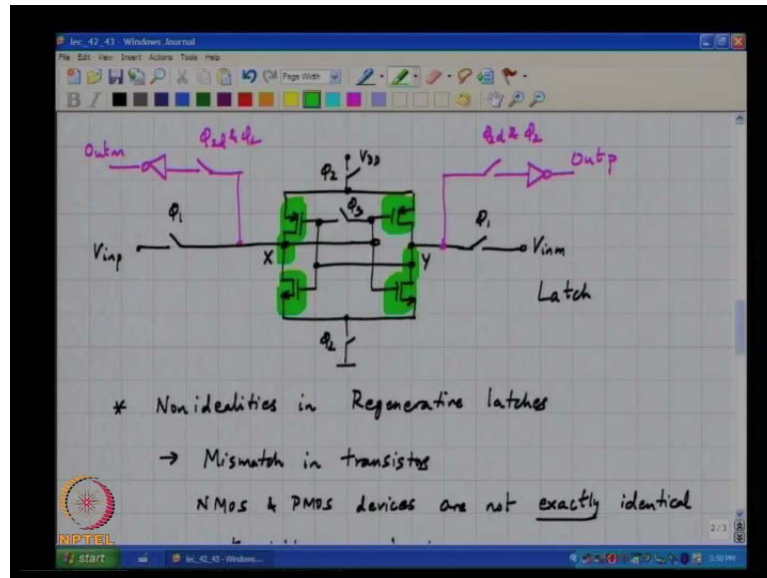 lec_42_43 - Windows Journal
File Edit View Insert Actions Tools Help
Page Width
B I
Outm
Φ2d & Φ2
VDD
Φ2d & Φ2
Outp
Φ2
Φ1
Φ3
Φ1
Vinp
X
Y
Vinm
Latch
Φ2
* Nonidealities in Regenerative latches
→ Mismatch in transistos
NMOS & PMOS devices are not exactly identical
2/3
NPTEL
start
lec_42_43 - Windows...
3:50 PM